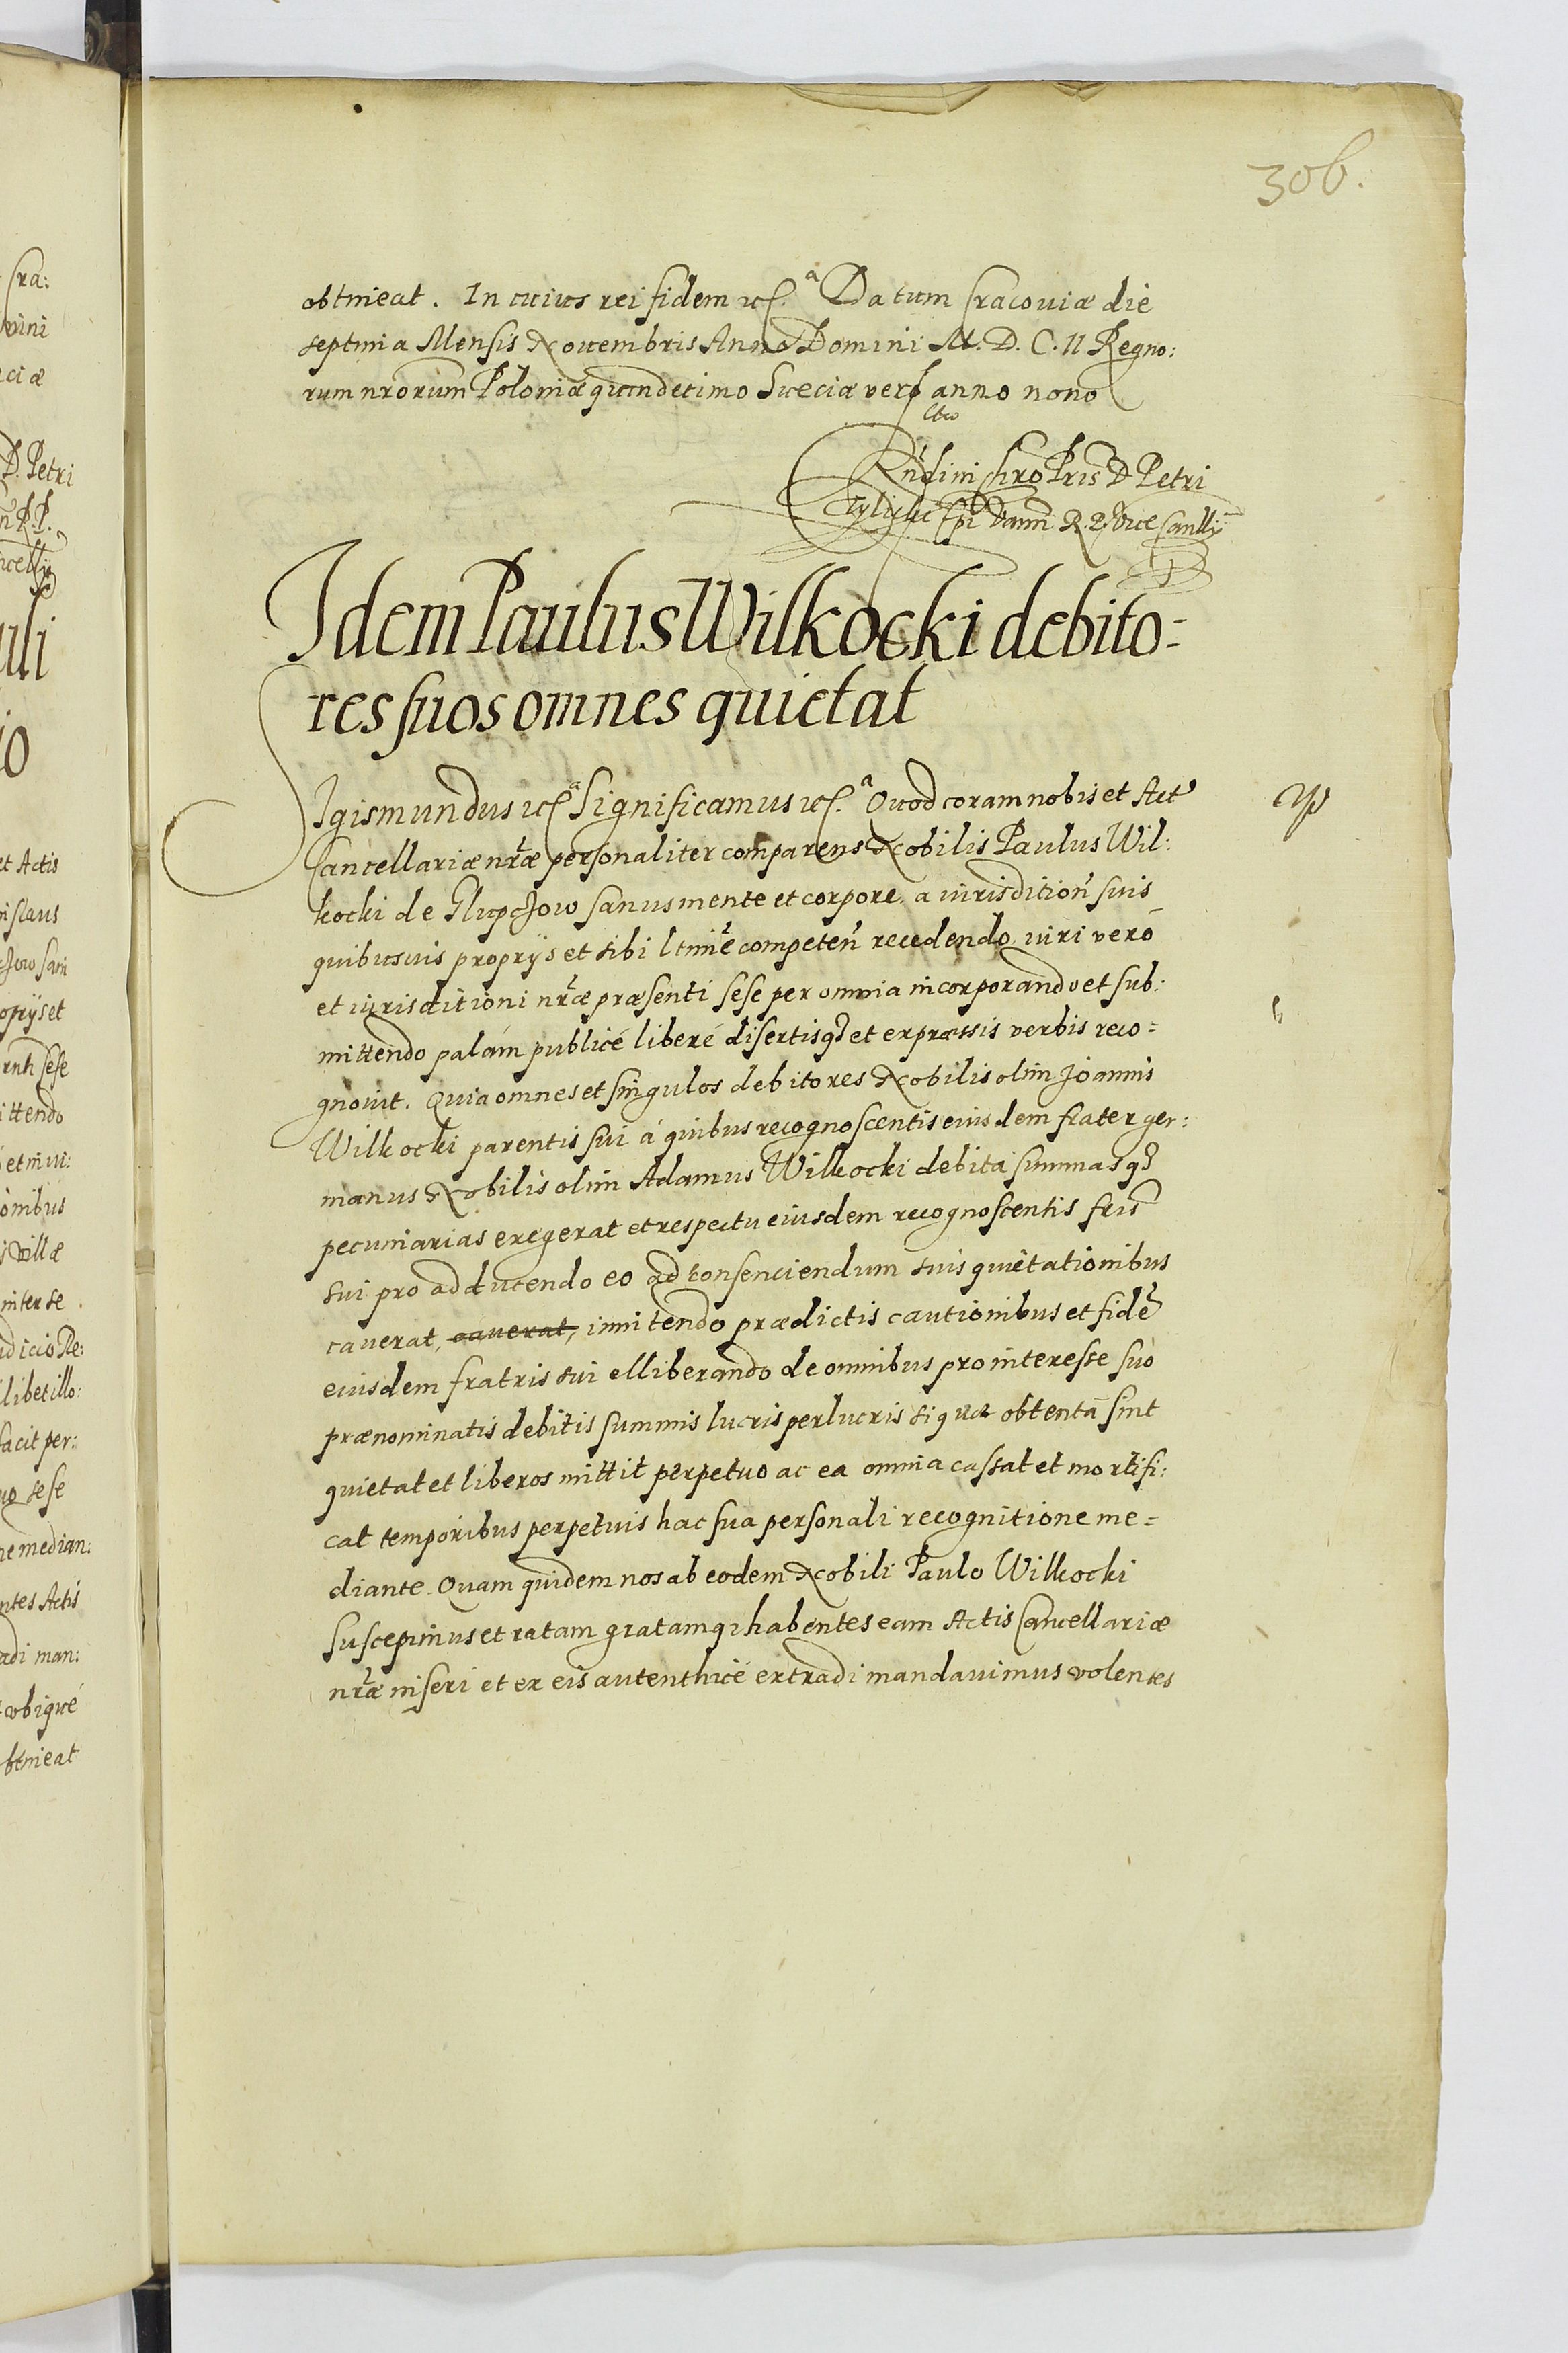 306.
obtineat. In cuius rei fidem etc.ª Datum Cracoviæ die
septima Mensis Novembris Anno Domini M. D. C. II Regno:
rum nrorum Poloniæ quindecimo Sueciæ vero anno nono
Rndini Chro Pris D Petri
Tylicki Epi Varm R. P. Vice Canllij
Idem Paulus Wilkocki debito=
res suos omnes quietat
Sigismundus etc.ª Significamus etc.ª Quod coram nobis et Act
Cancellariæ nræ personaliter comparens Nobilis Paulus Wil:
kocki de Glupczow sanus mente et corpore a iurisdition suis
quibusvis proprijs et sibi ltime competen recedendo, iuri vero
et iurisditioni nræ præsenti sese per omnia incorporando et sub:
mittendo palám publicé liberé disertisq et expressis verbis reco=
gnovit. Quia omnes et singulos debitores Nobilis olim Joannis
Wilkocki parentis sui á quibus recognoscentis eiusdem frater ger:
manus Nobilis olim Adamus Wilkocki debita summasq
pecuniarias exegerat et respectu eiusdem recognoscentis fris
sui pro adducendo eo ad consenciendum suis quietationibus
caverat, caverat, innitendo prædictis cautionibus et fide
eiusdem fratris sui elliberando de omnibus pro interesse suo
prænominatis debitis summis lucris perlucris si quæ obtenta sint
quietat et liberos mittit perpetuo ac ea omnia cassat et mortifi:
cat temporibus perpetuis hac sua personali recognitione me=
diante. Quam quidem nos ab eodem Nobili Paulo Wilkocki
suscepimus et ratam gratamq habentes eam Actis Cancellariæ
nræ inseri et ex eis autenthicé extradi mandavimus volentes